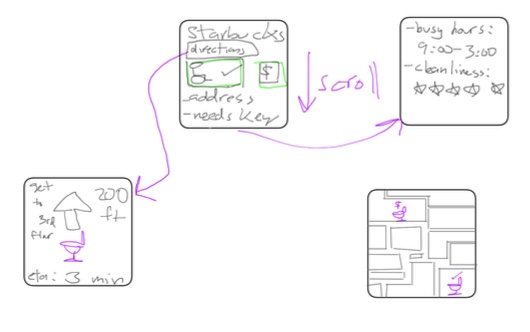 Starbucks
directions
$
-address
-needs key
scroll
-busy hours:
9:00-3:00
-cleanliness:
get
to
3rd
floor
200
ft
eta: 3 min
$